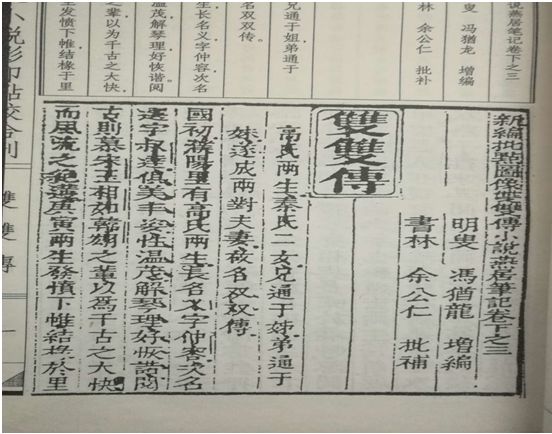 说燕居笔记卷下之三
叟 冯犹龙 增编
余公仁 批补
兄通于姐弟通于
名双双传。
生长名义字仲容次名
温茂解琴理好恢谐阅
辈以为千古之大快
发愤下帷结椽于里
新編批點圖像雙雙傳小說燕居筆記卷下之三
明叟 馮猶龍 增編
書林 余公仁 批補
雙雙傳
高氏兩生秦氏二女兄通于姊弟通于
妹遂成兩對夫妻故名双双傳
國初襄陽里有高氏兩生長名义字仲容次名
字叔達俱美丰姿性温茂解琴理好恢諧閱
古則慕宋玉相如韓嫣之輩以為千古之大快
而風流之絕 庚寅兩生發憤下帷結椽於里
小說影印點校合刊 雙雙傳 一